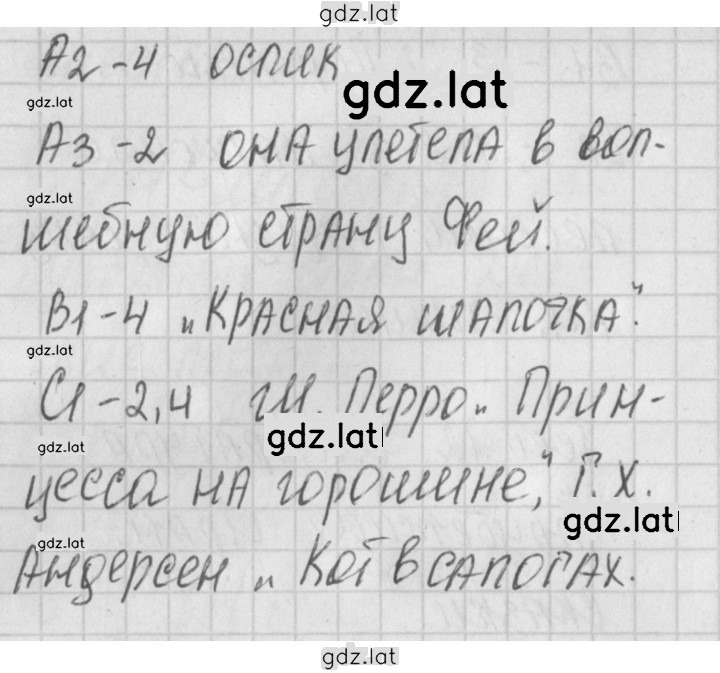 gdz.lat
А2-4 ослик
gdz.lat
gdz.lat
А3-2 она улетела в вол-
gdz.lat
шебную страну Фей.
В1-4 „Красная шапочка".
gdz.lat
С1-2,4 Ш. Перро „Прин-
gdz.lat
gdz.lat
цесса на горошине", Г. Х.
gdz.lat
gdz.lat
Андерсен „Кот в сапогах.
gdz.lat